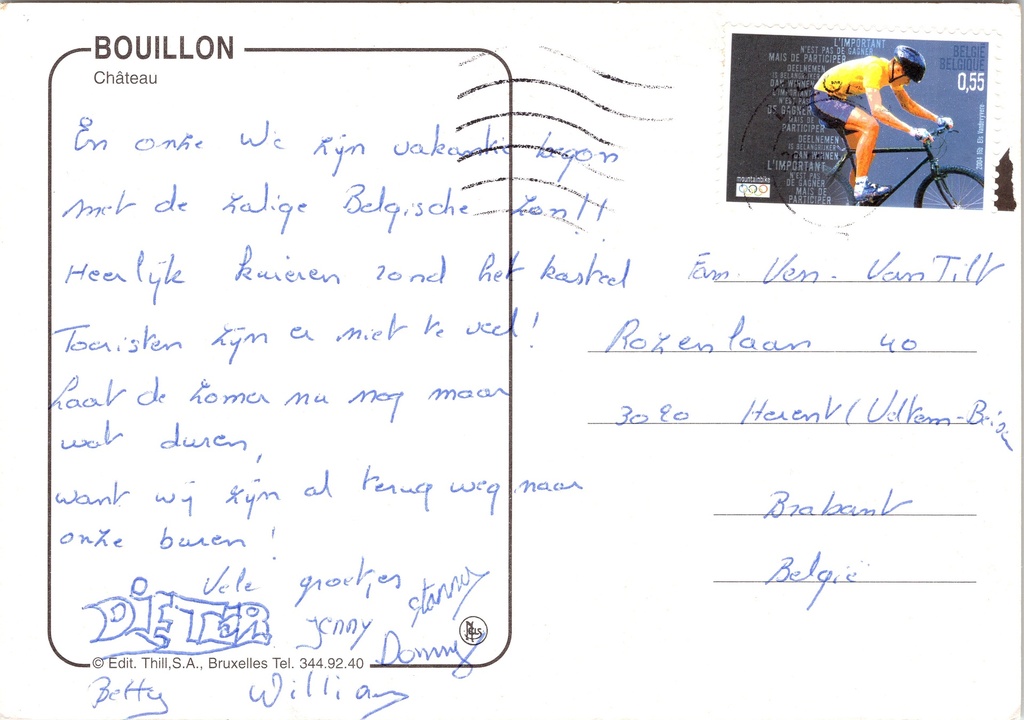 BOUILLON
Château
En onze We zijn vakantie begon
met de zalige Belgische zon!!
Heerlijk kuieren rond het kasteel
Toeristen zijn er niet te veel!
Laat de zomer nu nog maar
wat duren,
want wij zijn al terug weg naar
onze buren!
Vele groetjes
DIETER
Jenny
Stanny
Donny
Betty
William
© Edit. Thill,S.A., Bruxelles Tel. 344.92.40
NELS
L'IMPORTANT
N'EST PAS DE GAGNER
MAIS DE PARTICIPER
DEELNEMEN
IS BELANGRIJKER
DAN WINNEN
L'IMPORTANT
N'EST PAS
DE GAGNER
MAIS DE
PARTICIPER
DEELNEMEN
IS BELANGRIJKER
DAN WINNEN
L'IMPORTANT
N'EST PAS
DE GAGNER
MAIS DE
PARTICIPER
BELGIË
BELGIQUE
0,55
mountainbike
Fam. Ven - Van Tilt
Rozenlaan 40
3020 Herent (Veltem-Beisem
Brabant
België